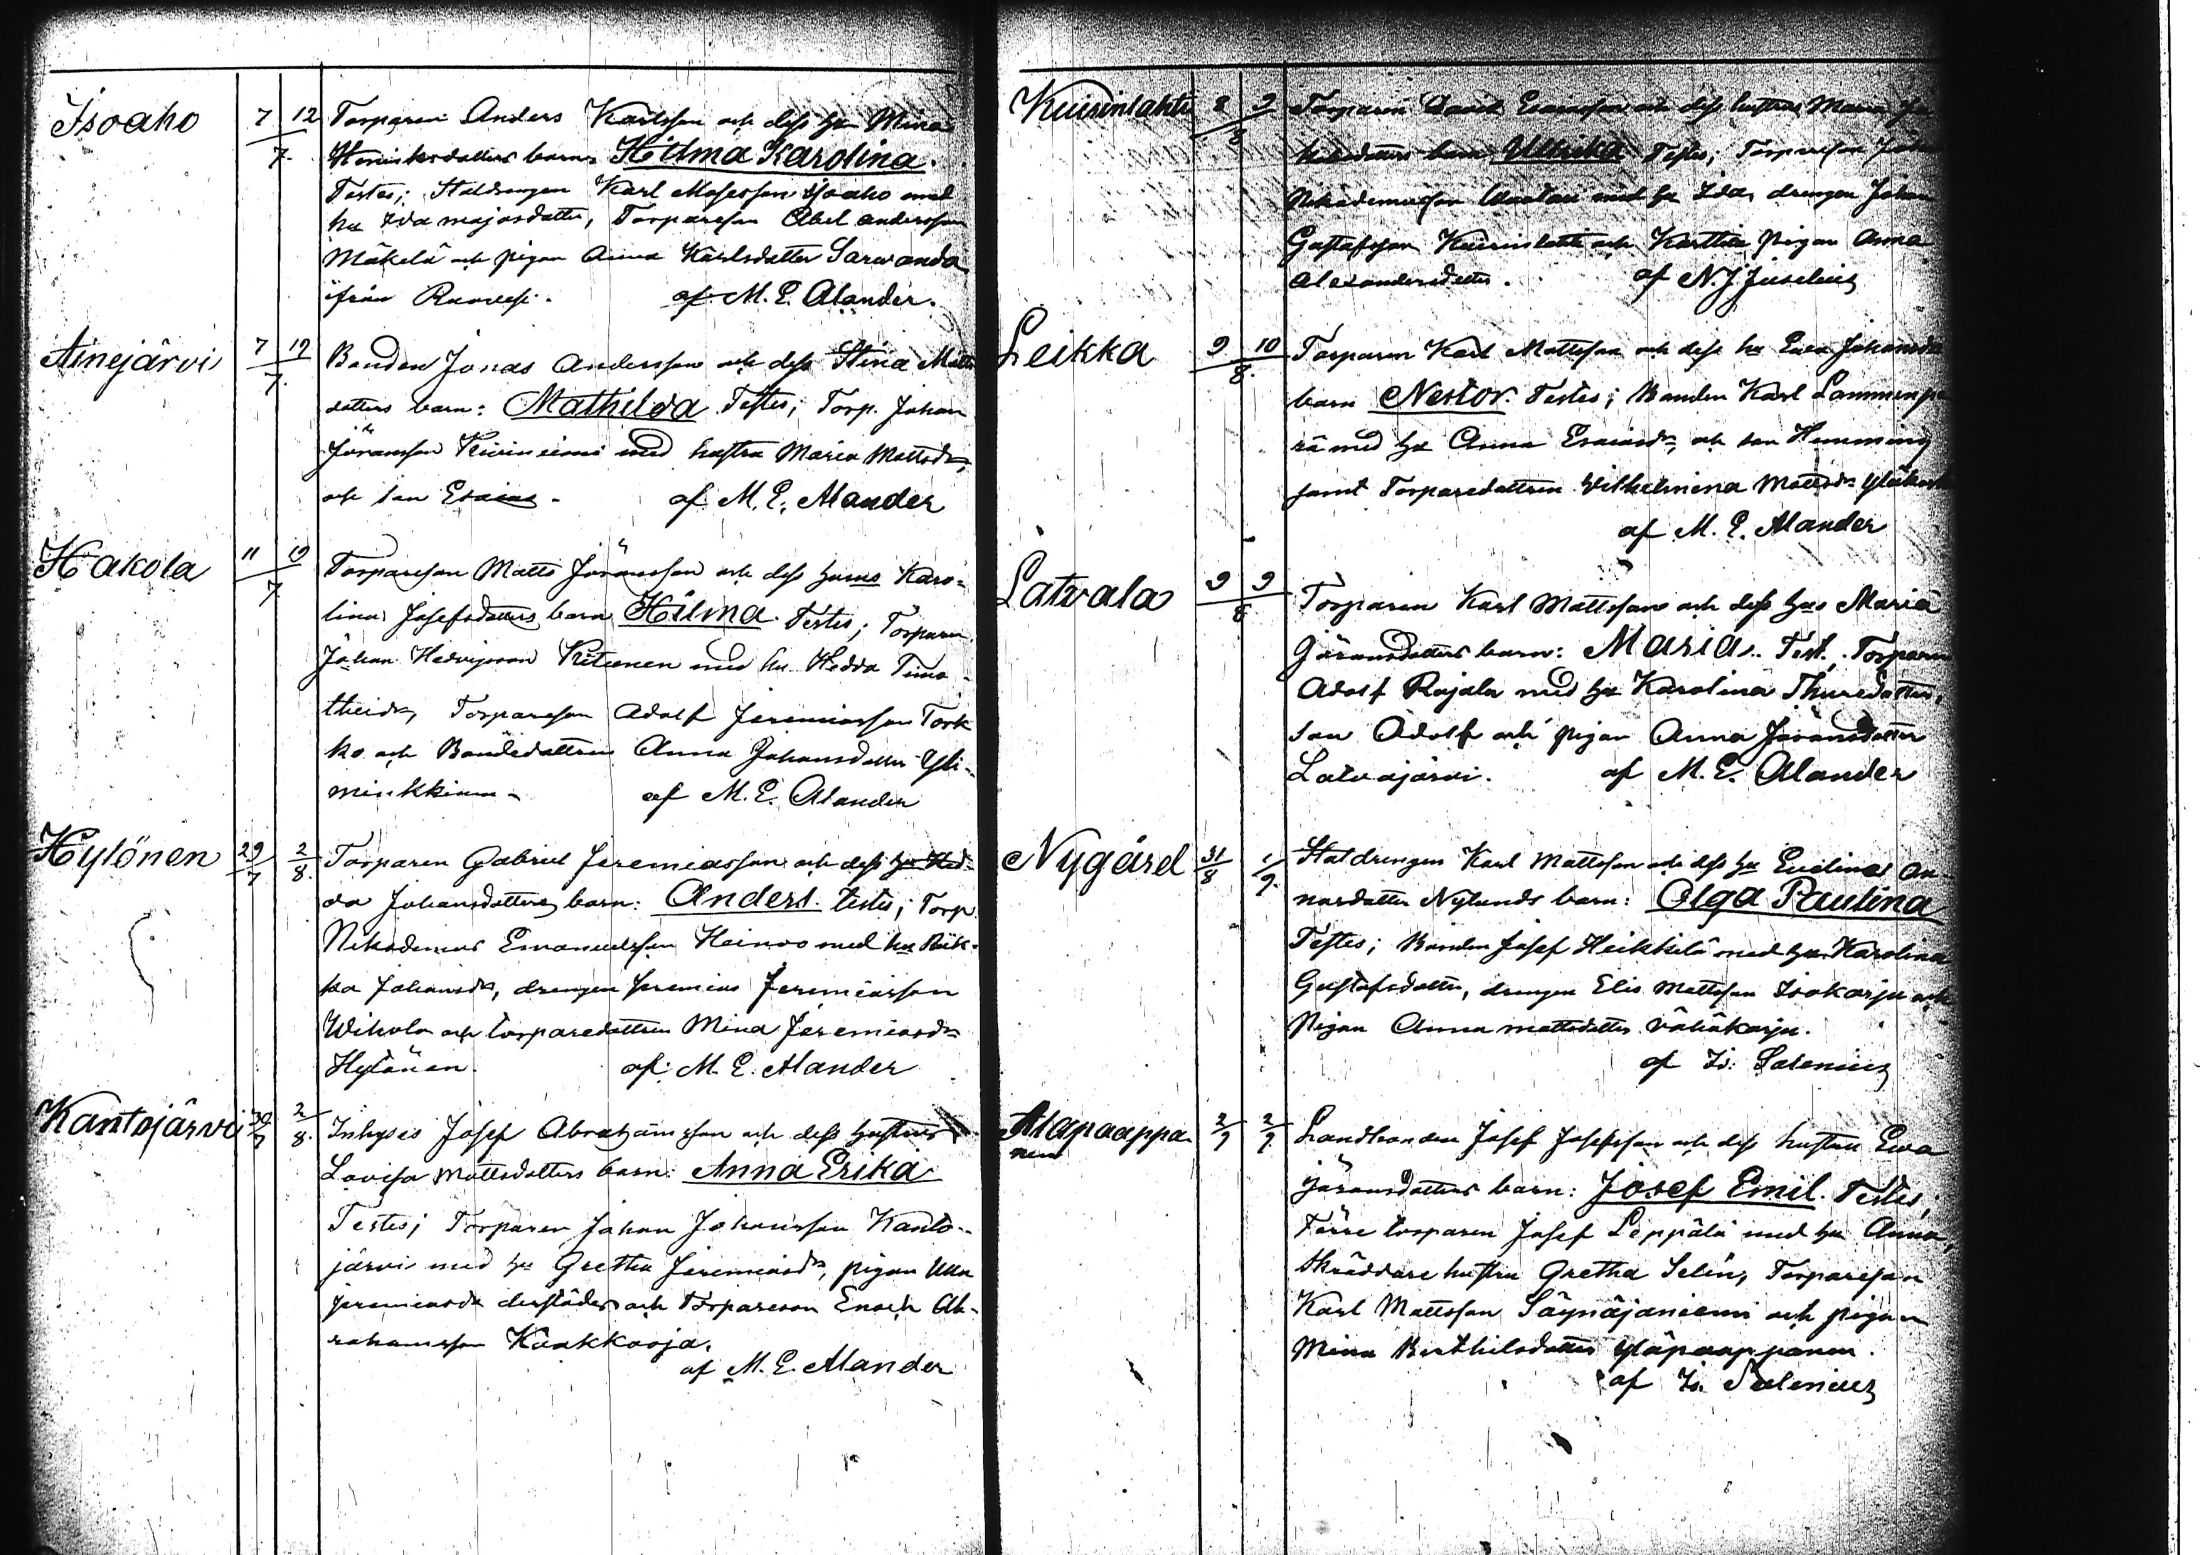 Isoaho 7 12/7. Torparen Anders Karlsson och dess hu Mina
Henriksdotters barn Hilma Karolina.
Testes; Statdrengen Karl Mosesson Isoaho med
hu Ida majasdotter, Torpareson Abel andersson
Mäkelä och pigan Anna Karlsdotter Sarwanda
ifrån Ruovesi. af M. E. Alander.
Ainejärvi 7 19/7. Bonden Jonas Andersson och dess Stina Matts
dotters barn: Mathilda Testes; Torp. Johan
Jöransson med hustru Maria Mattsdr,
och son Esaias. af M. E. Alander
Hakola 11 19/7 Torpareson Matts Jöransson och dess hustrus Karo-
lina Josefsdotters barn Hilma. Testes; Torparen
Johan Kitunen med hu Hedda Timo-
theidr, Torpareson Adolf Jeremiasson Tork
ko och Bondedottren Anna Johansdotter Yli-
af M. E. Alander
Hylönen 29/7 2/8. Torparen Gabriel Jeremiasson och dess hu Hed-
da Johansdotters barn: Anders. testes; Torp.
Nikodemus Emanuelsson Heinoo med hu
Johansdr, drengen Jeremias Jeremiasson
Wihola och torparedottren Mina Jeremiasdr
Hylönen. af: M. E. Alander
Kantojärvi 30/7 2/8. Inhyses Josef Abrahamsson och dess hustrus
Lovisa Mattsdotters barn: Anna Erika
Testes; Torparen Johan Johansson Kanto-
järvi med hu Gretha Jeremiasdr, pigan Ulla
Jeremiasdr derstädes och Torpareson Enoch Ab-
rahamsson Kaakkooja.
af M. E. Alander
Kuirinlahti 8 9/8 Torparen David Esaiasson och dess hustrus Maria
barn Ulrika Testes; Torpareson
Nikodemusson med hu Ida, drengen Johan
Gustafsson Kuirinlahti och pigan Anna
Alexandersdotter. af N. J. Juselius
Leikka 9 10/8. Torparen Karl Mattsson och dess hu Eva Johansdr
barn Nestor. Testes; Bonden Karl Lammenpä
rä med hu Anna Esaiasdr, och son Hemming
samt Torparedottren Wilhelmina Mattsdr
af M. E. Alander
Latvala 9 9/8 Torparen Karl Mattsson och dess hus Maria
Göransdotters barn: Maria. Test. Torparen
Adolf Rajala med hu Karolina Thuredotter,
son Adolf och pigan Anna Jöransdotter
Latvajärvi. af M. E. Alander
Nygård 31/8 1/9. Statdrengen Karl Mattsson och dess hu Evelina
nardotter Nylunds barn: Olga Paulina
Testes; Bonden Josef Heikkilä med hu Karolina
Gustafsdotter, drengen Elis Mattsson Isokarju och
Pigan Anna mattsdotter Vähäkarju.
af Is. Salenius
Alapaappa- 2/9 2/9 Landbonden Josef Josefsson och dess hustru Eva
nen Jöransdotters barn: Josef Emil. Testes;
Förre torparen Josef Leppälä med hu Anna,
Skräddare hustru Gretha Selin, Torpareson
Karl Mattsson Säynäjäniemi och pigan
Mina Berthilsdotter Yläpaappanen.
af Is. Salenius